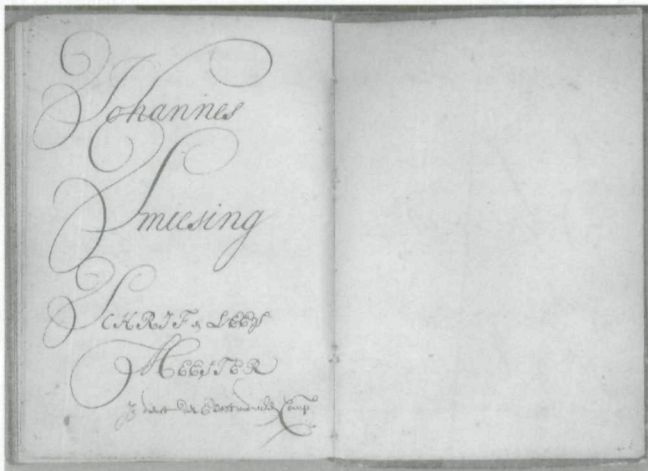 Johannes
Smeesing
SCHRIF & LEES
MEESTER